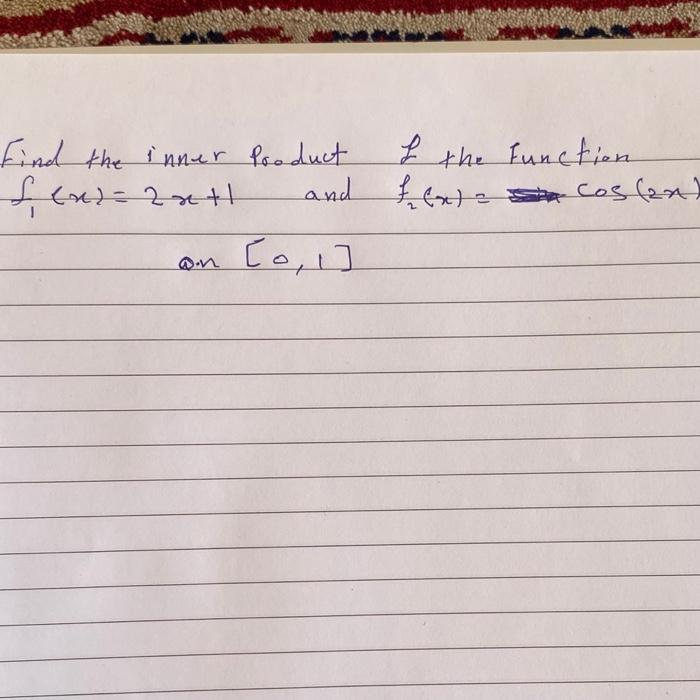 Find the inner Product of the Function
f₁(x) = 2x+1 and f₂(x) = cos(2x)
on [0,1]